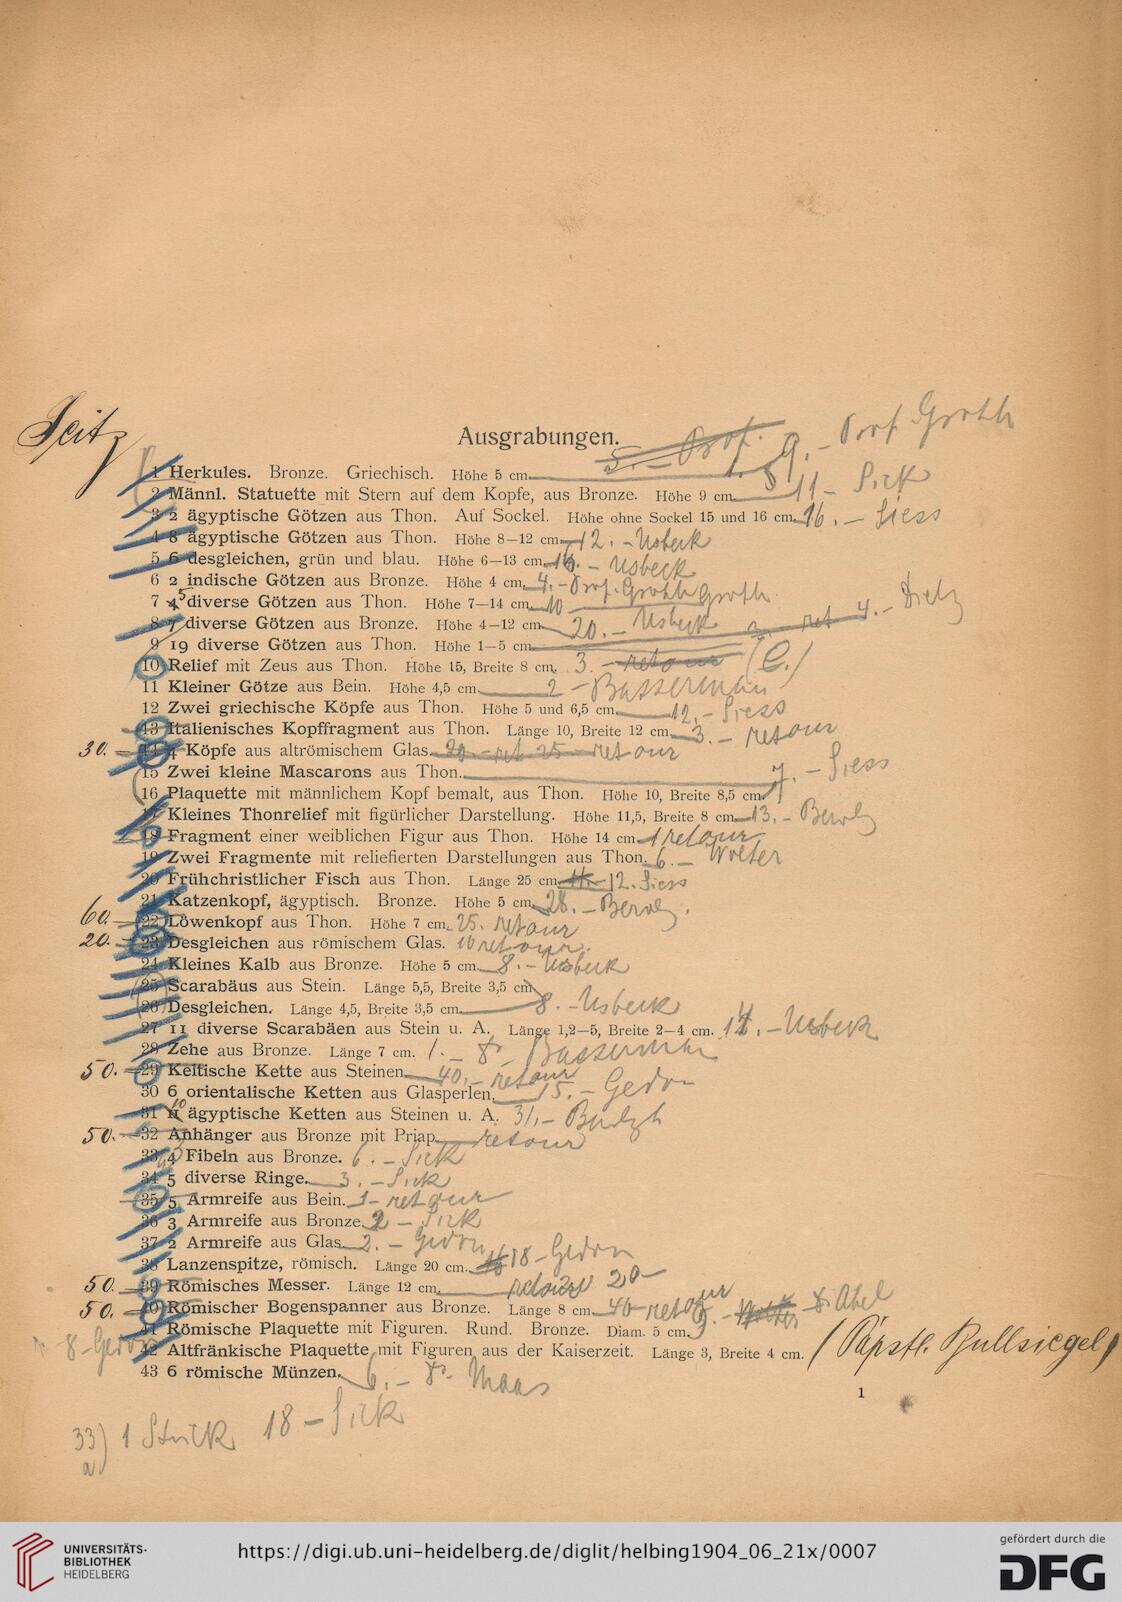 Seitz
Ausgrabungen. 5.– Prof. 9.– Prof. Groth
1 Herkules. Bronze. Griechisch. Höhe 5 cm
2 Männl. Statuette mit Stern auf dem Kopfe, aus Bronze. Höhe 9 cm. 11 – Sick
3 2 ägyptische Götzen aus Thon. Auf Sockel. Höhe ohne Sockel 15 und 16 cm. 16.– Siess
4 8 ägyptische Götzen aus Thon. Höhe 8–12 cm 12.– Usbeck
5 6 desgleichen, grün und blau. Höhe 6–13 cm – Usbeck
6 2 indische Götzen aus Bronze. Höhe 4 cm. 4.– Prof. Groth
7 4 5 diverse Götzen aus Thon. Höhe 7–14 cm. 10 Groth
8 7 diverse Götzen aus Bronze. Höhe 4–12 cm. 20.– Usbeck
9 19 diverse Götzen aus Thon. Höhe 1–5 cm. ret 4.–
10 Relief mit Zeus aus Thon. Höhe 15, Breite 8 cm. 3.– retour
11 Kleiner Götze aus Bein. Höhe 4,5 cm. 2 – Bassermann
12 Zwei griechische Köpfe aus Thon. Höhe 5 und 6,5 cm. 12.– Siess
13 Italienisches Kopffragment aus Thon. Länge 10, Breite 12 cm. 3.– retour
30.– 14 4 Köpfe aus altrömischem Glas. 20.– ret 25 – retour
15 Zwei kleine Mascarons aus Thon. 7.– Siess
16 Plaquette mit männlichem Kopf bemalt, aus Thon. Höhe 10, Breite 8,5 cm.
17 Kleines Thonrelief mit figürlicher Darstellung. Höhe 11,5, Breite 8 cm. 13.–
18 Fragment einer weiblichen Figur aus Thon. Höhe 14 cm. 1 retour
19 Zwei Fragmente mit reliefierten Darstellungen aus Thon. 6.– Wolter
20 Frühchristlicher Fisch aus Thon. Länge 25 cm. 12. Siess
21 Katzenkopf, ägyptisch. Bronze. Höhe 5 cm. 28.–
60.– 22 Löwenkopf aus Thon. Höhe 7 cm. 25. retour
20.– 23 Desgleichen aus römischem Glas. 10 retour.
24 Kleines Kalb aus Bronze. Höhe 5 cm. 8.– Usbeck
25 Scarabäus aus Stein. Länge 5,5, Breite 3,5 cm.
26 Desgleichen. Länge 4,5, Breite 3,5 cm. 8.– Usbeck
27 11 diverse Scarabäen aus Stein u. A. Länge 1,2–5, Breite 2–4 cm. – Usbeck
28 Zehe aus Bronze. Länge 7 cm. 1.– Dr. Bassermann
50.– 29 Keltische Kette aus Steinen. 40.– retour
30 6 orientalische Ketten aus Glasperlen. 15.– Gedon
31 11 10 ägyptische Ketten aus Steinen u. A. 31.–
50.– 32 Anhänger aus Bronze mit Priap. retour
33 4 3 Fibeln aus Bronze. 6.– Sick
34 5 diverse Ringe. 3.– Sick
35 5 Armreife aus Bein. 1– retour
36 3 Armreife aus Bronze. 2 – Sick
37 2 Armreife aus Glas. 2.– Gedon
38 Lanzenspitze, römisch. Länge 20 cm. 18 – Gedon
50.– 39 Römisches Messer. Länge 12 cm. retour 20–
50.– 40 Römischer Bogenspanner aus Bronze. Länge 8 cm. 40– retour
41 Römische Plaquette mit Figuren. Rund. Bronze. Diam. 5 cm. 9.– Wolter Dr. Abel
8 – Gedon 42 Altfränkische Plaquette mit Figuren aus der Kaiserzeit. Länge 3, Breite 4 cm. (Päpstl. Bullsiegel)
43 6 römische Münzen. 6.– Dr. Maas
1
33) a 1 Stück 18 – Sick
UNIVERSITÄTS-
BIBLIOTHEK
HEIDELBERG
https://digi.ub.uni-heidelberg.de/diglit/helbing1904_06_21x/0007
gefördert durch die
DFG